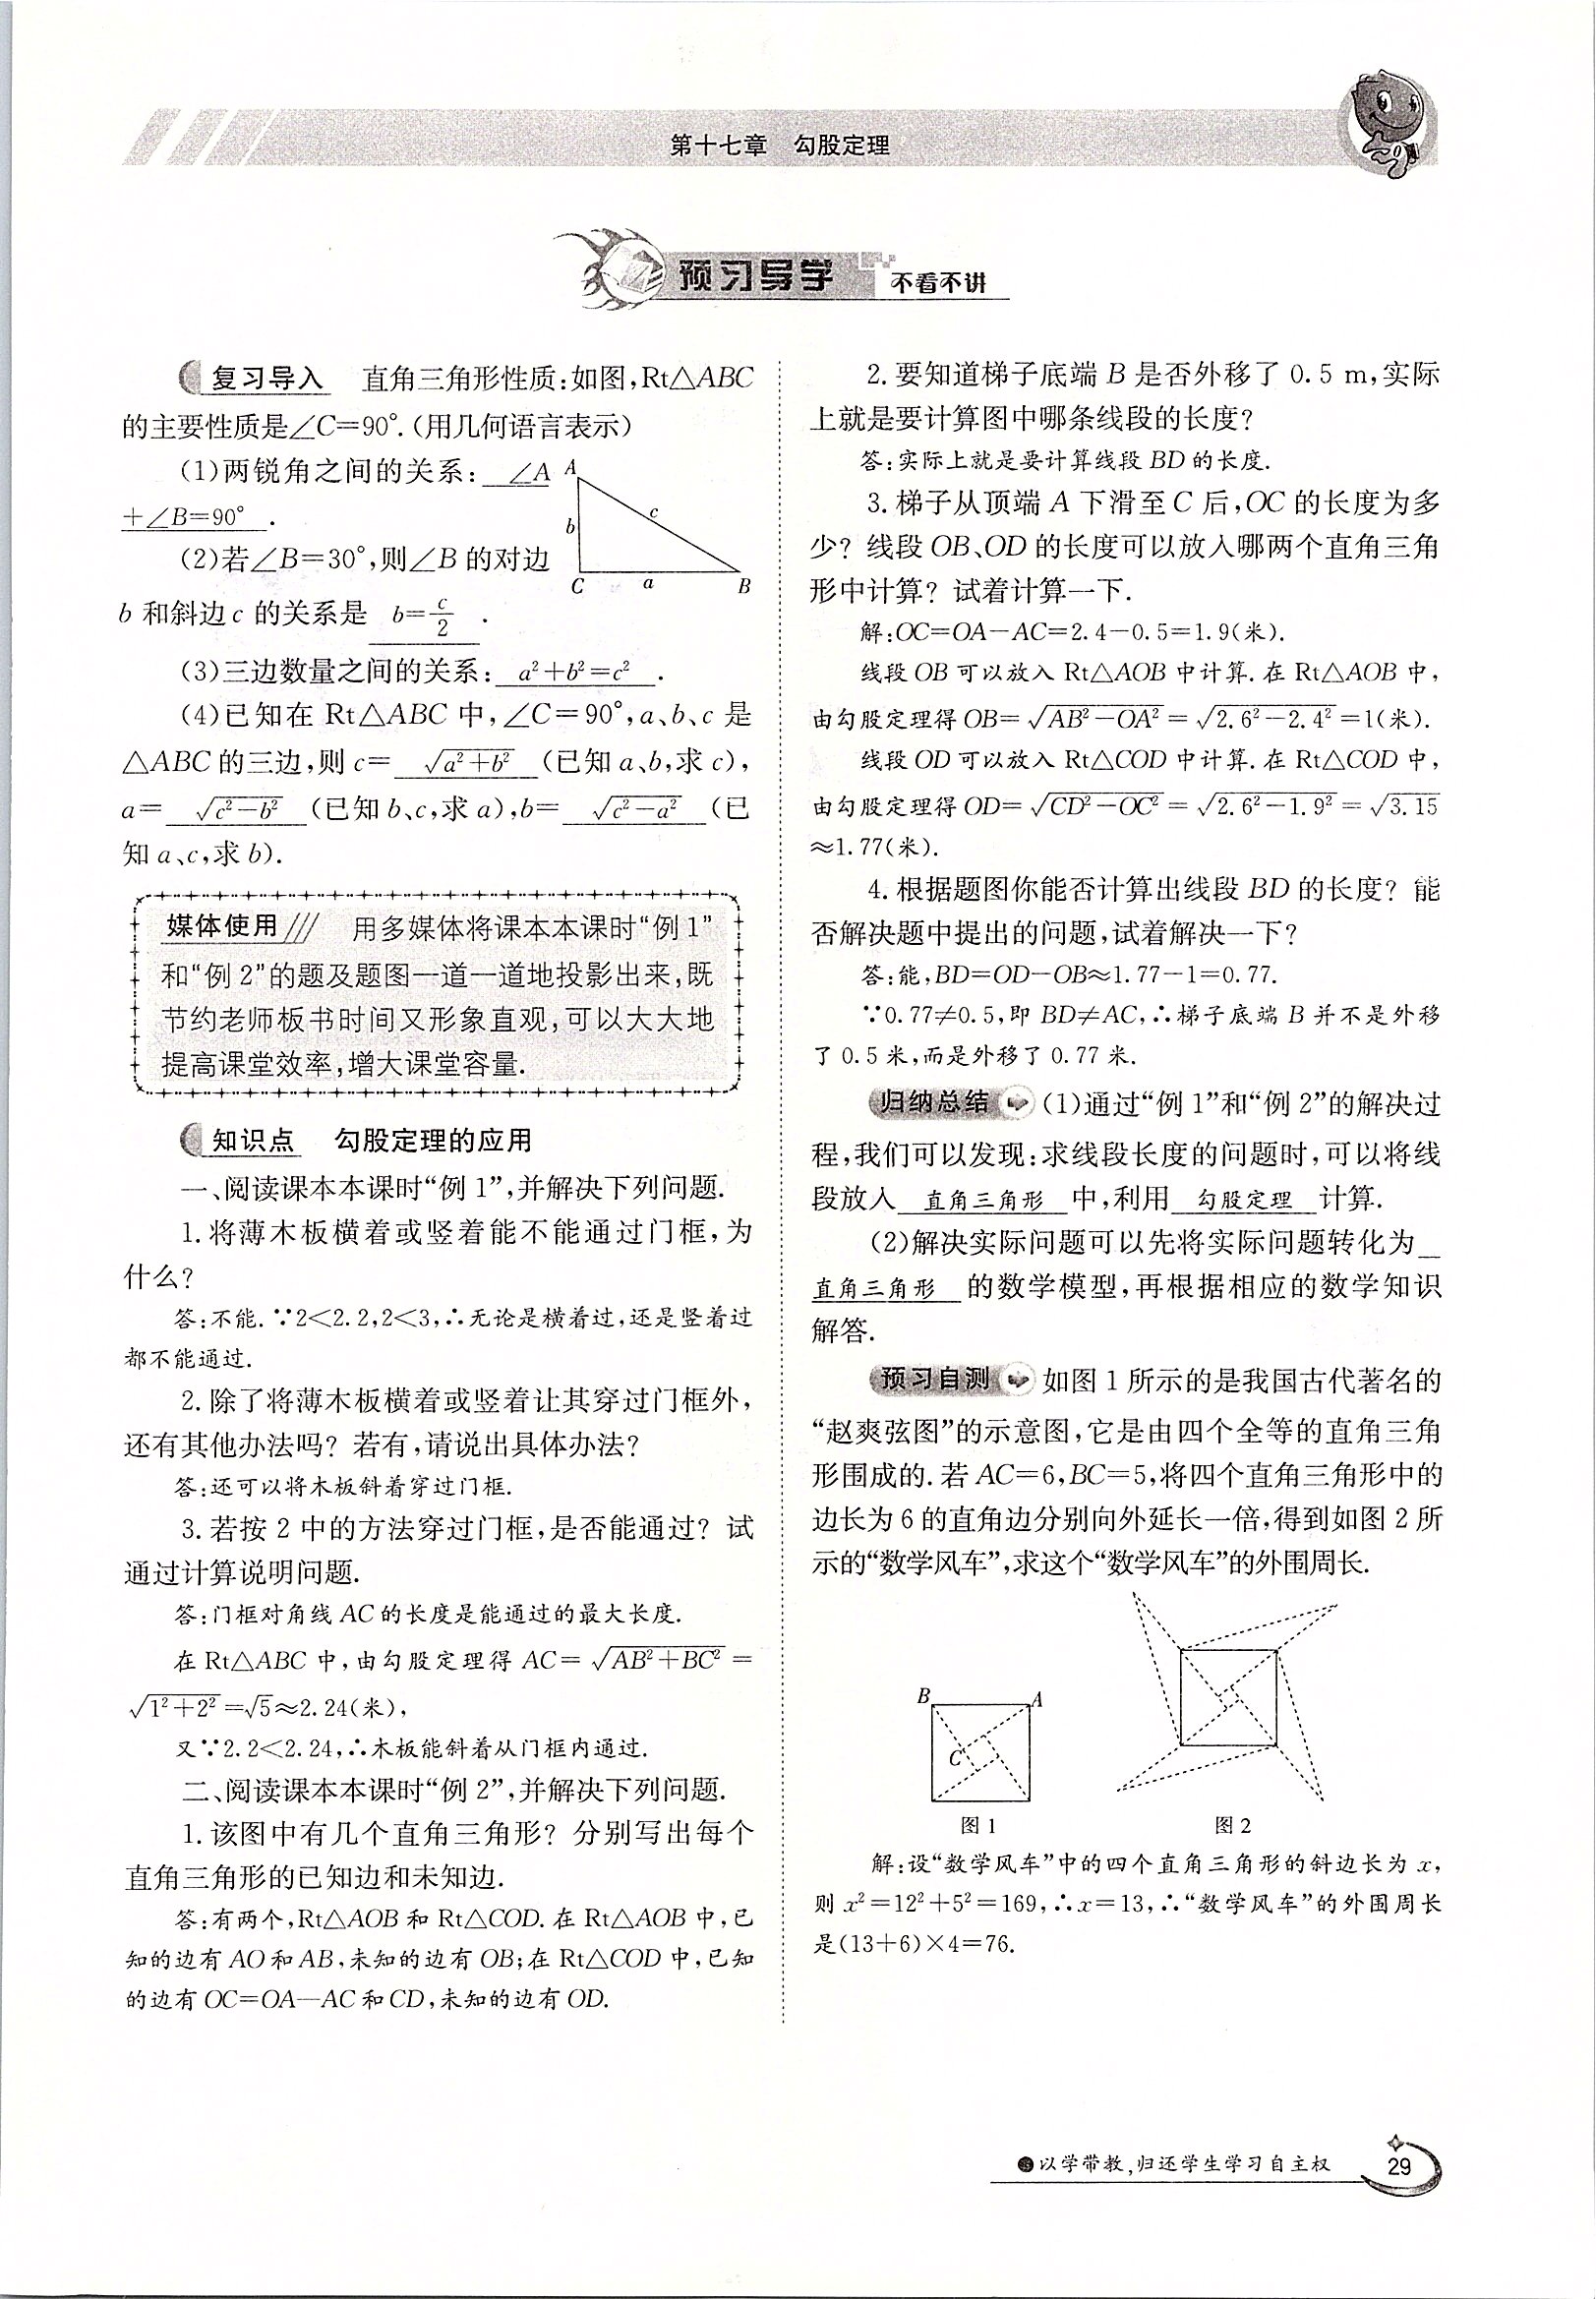 第十七章　勾股定理
预习导学　不看不讲
复习导入　直角三角形性质:如图,Rt△ABC
的主要性质是∠C=90°.(用几何语言表示)
(1)两锐角之间的关系:　∠A
+∠B=90°　.
(2)若∠B=30°,则∠B 的对边
b 和斜边 c 的关系是　b=c/2　.
A
b
c
C
a
B
(3)三边数量之间的关系:　a²+b²=c²　.
(4)已知在 Rt△ABC 中,∠C=90°,a、b、c 是
△ABC 的三边,则 c=　√(a²+b²)　(已知 a、b,求 c),
a=　√(c²-b²)　(已知 b、c,求 a),b=　√(c²-a²)　(已
知 a、c,求 b).
媒体使用///　用多媒体将课本本课时“例 1”
和“例 2”的题及题图一道一道地投影出来,既
节约老师板书时间又形象直观,可以大大地
提高课堂效率,增大课堂容量.
知识点　勾股定理的应用
一、阅读课本本课时“例 1”,并解决下列问题.
1. 将薄木板横着或竖着能不能通过门框,为
什么?
答:不能. ∵2<2.2,2<3,∴无论是横着过,还是竖着过
都不能通过.
2. 除了将薄木板横着或竖着让其穿过门框外,
还有其他办法吗? 若有,请说出具体办法?
答:还可以将木板斜着穿过门框.
3. 若按 2 中的方法穿过门框,是否能通过? 试
通过计算说明问题.
答:门框对角线 AC 的长度是能通过的最大长度.
在 Rt△ABC 中,由勾股定理得 AC=√(AB²+BC²)=
√(1²+2²)=√5≈2.24(米),
又∵2.2<2.24,∴木板能斜着从门框内通过.
二、阅读课本本课时“例 2”,并解决下列问题.
1. 该图中有几个直角三角形? 分别写出每个
直角三角形的已知边和未知边.
答:有两个,Rt△AOB 和 Rt△COD. 在 Rt△AOB 中,已
知的边有 AO 和 AB,未知的边有 OB;在 Rt△COD 中,已知
的边有 OC=OA—AC 和 CD,未知的边有 OD.
2. 要知道梯子底端 B 是否外移了 0.5 m,实际
上就是要计算图中哪条线段的长度?
答:实际上就是要计算线段 BD 的长度.
3. 梯子从顶端 A 下滑至 C 后,OC 的长度为多
少? 线段 OB、OD 的长度可以放入哪两个直角三角
形中计算? 试着计算一下.
解:OC=OA-AC=2.4-0.5=1.9(米).
线段 OB 可以放入 Rt△AOB 中计算. 在 Rt△AOB 中,
由勾股定理得 OB=√(AB²-OA²)=√(2.6²-2.4²)=1(米).
线段 OD 可以放入 Rt△COD 中计算. 在 Rt△COD 中,
由勾股定理得 OD=√(CD²-OC²)=√(2.6²-1.9²)=√3.15
≈1.77(米).
4. 根据题图你能否计算出线段 BD 的长度? 能
否解决题中提出的问题,试着解决一下?
答:能,BD=OD-OB≈1.77-1=0.77.
∵0.77≠0.5,即 BD≠AC,∴梯子底端 B 并不是外移
了 0.5 米,而是外移了 0.77 米.
归纳总结　(1)通过“例 1”和“例 2”的解决过
程,我们可以发现:求线段长度的问题时,可以将线
段放入　直角三角形　中,利用　勾股定理　计算.
(2)解决实际问题可以先将实际问题转化为
直角三角形　的数学模型,再根据相应的数学知识
解答.
预习自测　如图 1 所示的是我国古代著名的
“赵爽弦图”的示意图,它是由四个全等的直角三角
形围成的. 若 AC=6,BC=5,将四个直角三角形中的
边长为 6 的直角边分别向外延长一倍,得到如图 2 所
示的“数学风车”,求这个“数学风车”的外围周长.
B
A
C
图 1
图 2
解:设“数学风车”中的四个直角三角形的斜边长为 x,
则 x²=12²+5²=169,∴x=13,∴“数学风车”的外围周长
是(13+6)×4=76.
●以学带教,归还学生学习自主权
29